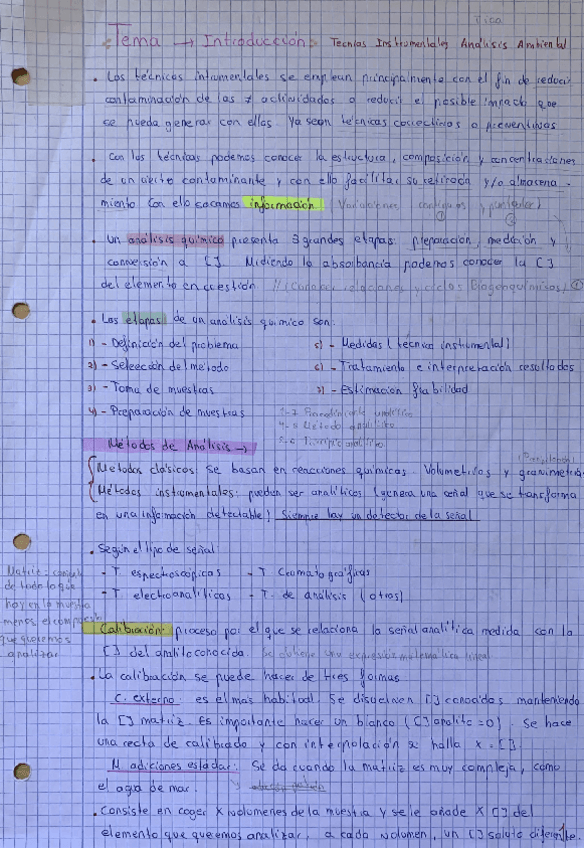 Tema → Introducción: Tecnias Instrumentales Análisis Ambiental
• Las técnicas intrumentales se emplean principalmente con el fin de reducir
contaminación de las ≠ actividades o reducir el posible impacto que
se pueda generar con ellos. Ya sean técnicas correctivas o preventivas
• Con las técnicas podemos conocer la estructura, composición y concentraciones
de un cierto contaminante y con ello facilitar su retirada y/o almacena-
miento con ello sacamos información (Variaciones
• Un análisis químico presenta 3 grandes etapas: preparación, medición y
conversión a []. Midiendo la absorbancia podemos conocer la []
del elemento en cuestión // (Conocer relaciones y ciclos Biogeoquímicos)
• Las etapas de un análisis químico son:
1) - Definición del problema
2) - Selección del método
3) - Toma de muestras
4) - Preparación de muestras
5) - Medidas (técnica instrumental)
6) - Tratamiento e interpretación resultados
7) - Estimación fiabilidad
1-7 Procedimiento analítico
4-6 Método analítico
Métodos de Análisis →
Métodos clásicos: Se basan en reacciones químicas. Volumetrías y gravimetrías
Métodos instrumentales: pueden ser analíticos (genera una señal que se transforma
en una información detectable) Siempre hay un detector de la señal
• Según el tipo de señal:
- T. espectroscópicos - T. Cromatográficas
- T. electroanalíticos - T. de análisis (otros)
Matriz: conjunto
de todo lo que
hay en la muestra
menos el compuesto
que queremos
analizar
Calibración: proceso por el que se relaciona la señal analítica medida con la
[] del analito conocida. Se obtiene una expresión matemática lineal
• La calibración se puede hacer de tres formas
C. externo: es el mas habitual. Se disuelven [] conocidas manteniendo
la [] matriz. Es importante hacer un blanco ([] analito = 0). Se hace
una recta de calibrado y con interpolación se halla x = []
M adiciones estadar: Se da cuando la matriz es muy compleja, como
el agua de mar.
• Consiste en coger X volumenes de la muestra y se le añade X [] del
elemento que queremos analizar, a cada volumen, un [] soluto diferente.